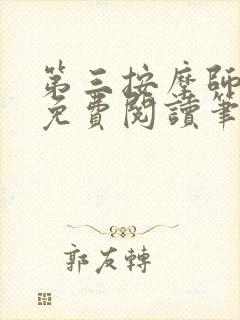 第三按摩師
免費閱讀筆
郭友轉